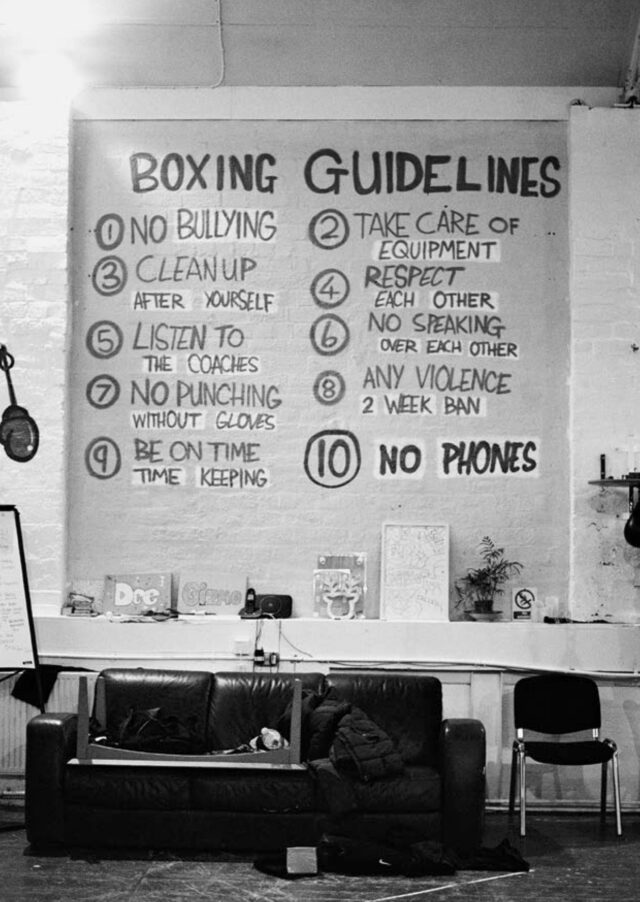 BOXING GUIDELINES
1 NO BULLYING
2 TAKE CARE OF
EQUIPMENT
3 CLEAN UP
AFTER YOURSELF
4 RESPECT
EACH OTHER
5 LISTEN TO
THE COACHES
6 NO SPEAKING
OVER EACH OTHER
7 NO PUNCHING
WITHOUT GLOVES
8 ANY VIOLENCE
2 WEEK BAN
9 BE ON TIME
TIME KEEPING
10 NO PHONES
Dec